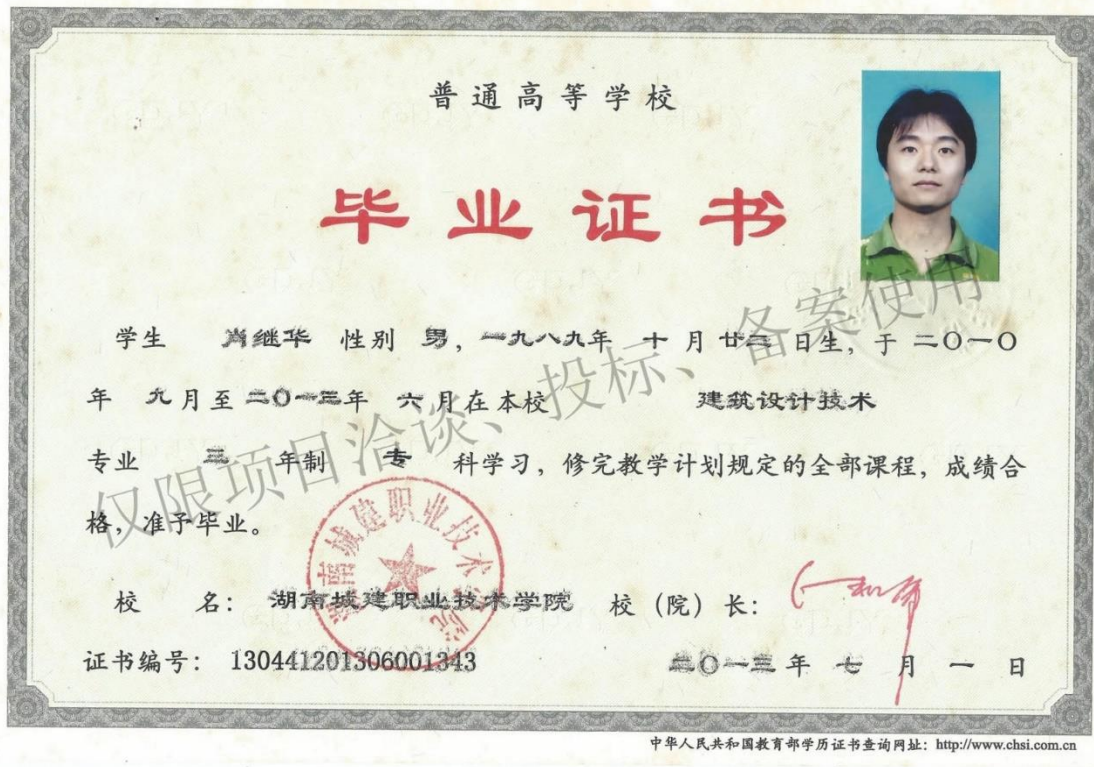 普通高等学校
毕业证书
学生 肖继华 性别 男，一九八九年 十 月 廿三 日生，于 二〇一〇
年 九月至 二〇一三年 六 月在本校 建筑设计技术
专业 三 年制 专 科学习，修完教学计划规定的全部课程，成绩合
格，准予毕业。
仅限项目洽谈、投标、备案使用
湖南城建职业技术学院
校 名： 湖南城建职业技术学院 校（院）长：
证书编号： 130441201306001343 二〇一三 年 七 月 一 日
中华人民共和国教育部学历证书查询网址：http://www.chsi.com.cn